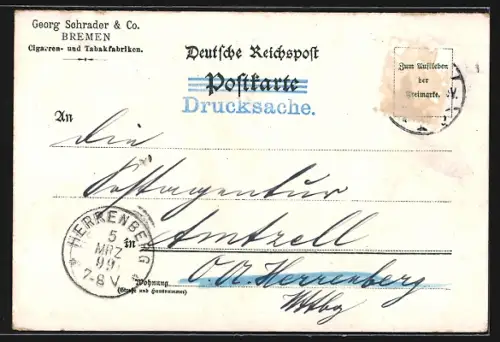 Georg Schrader & Co.
BREMEN
Cigarren- und Tabakfabriken.
Deutsche Reichspost
Postkarte
Drucksache.
Zum Aufkleben
der
Freimarke.
An
Die
Postagentur
in Amtzell
O. A. Herrenberg
Wttbg
Wohnung
(Straße und Hausnummer)
HERRENBERG
5
MRZ
99
7-8 V